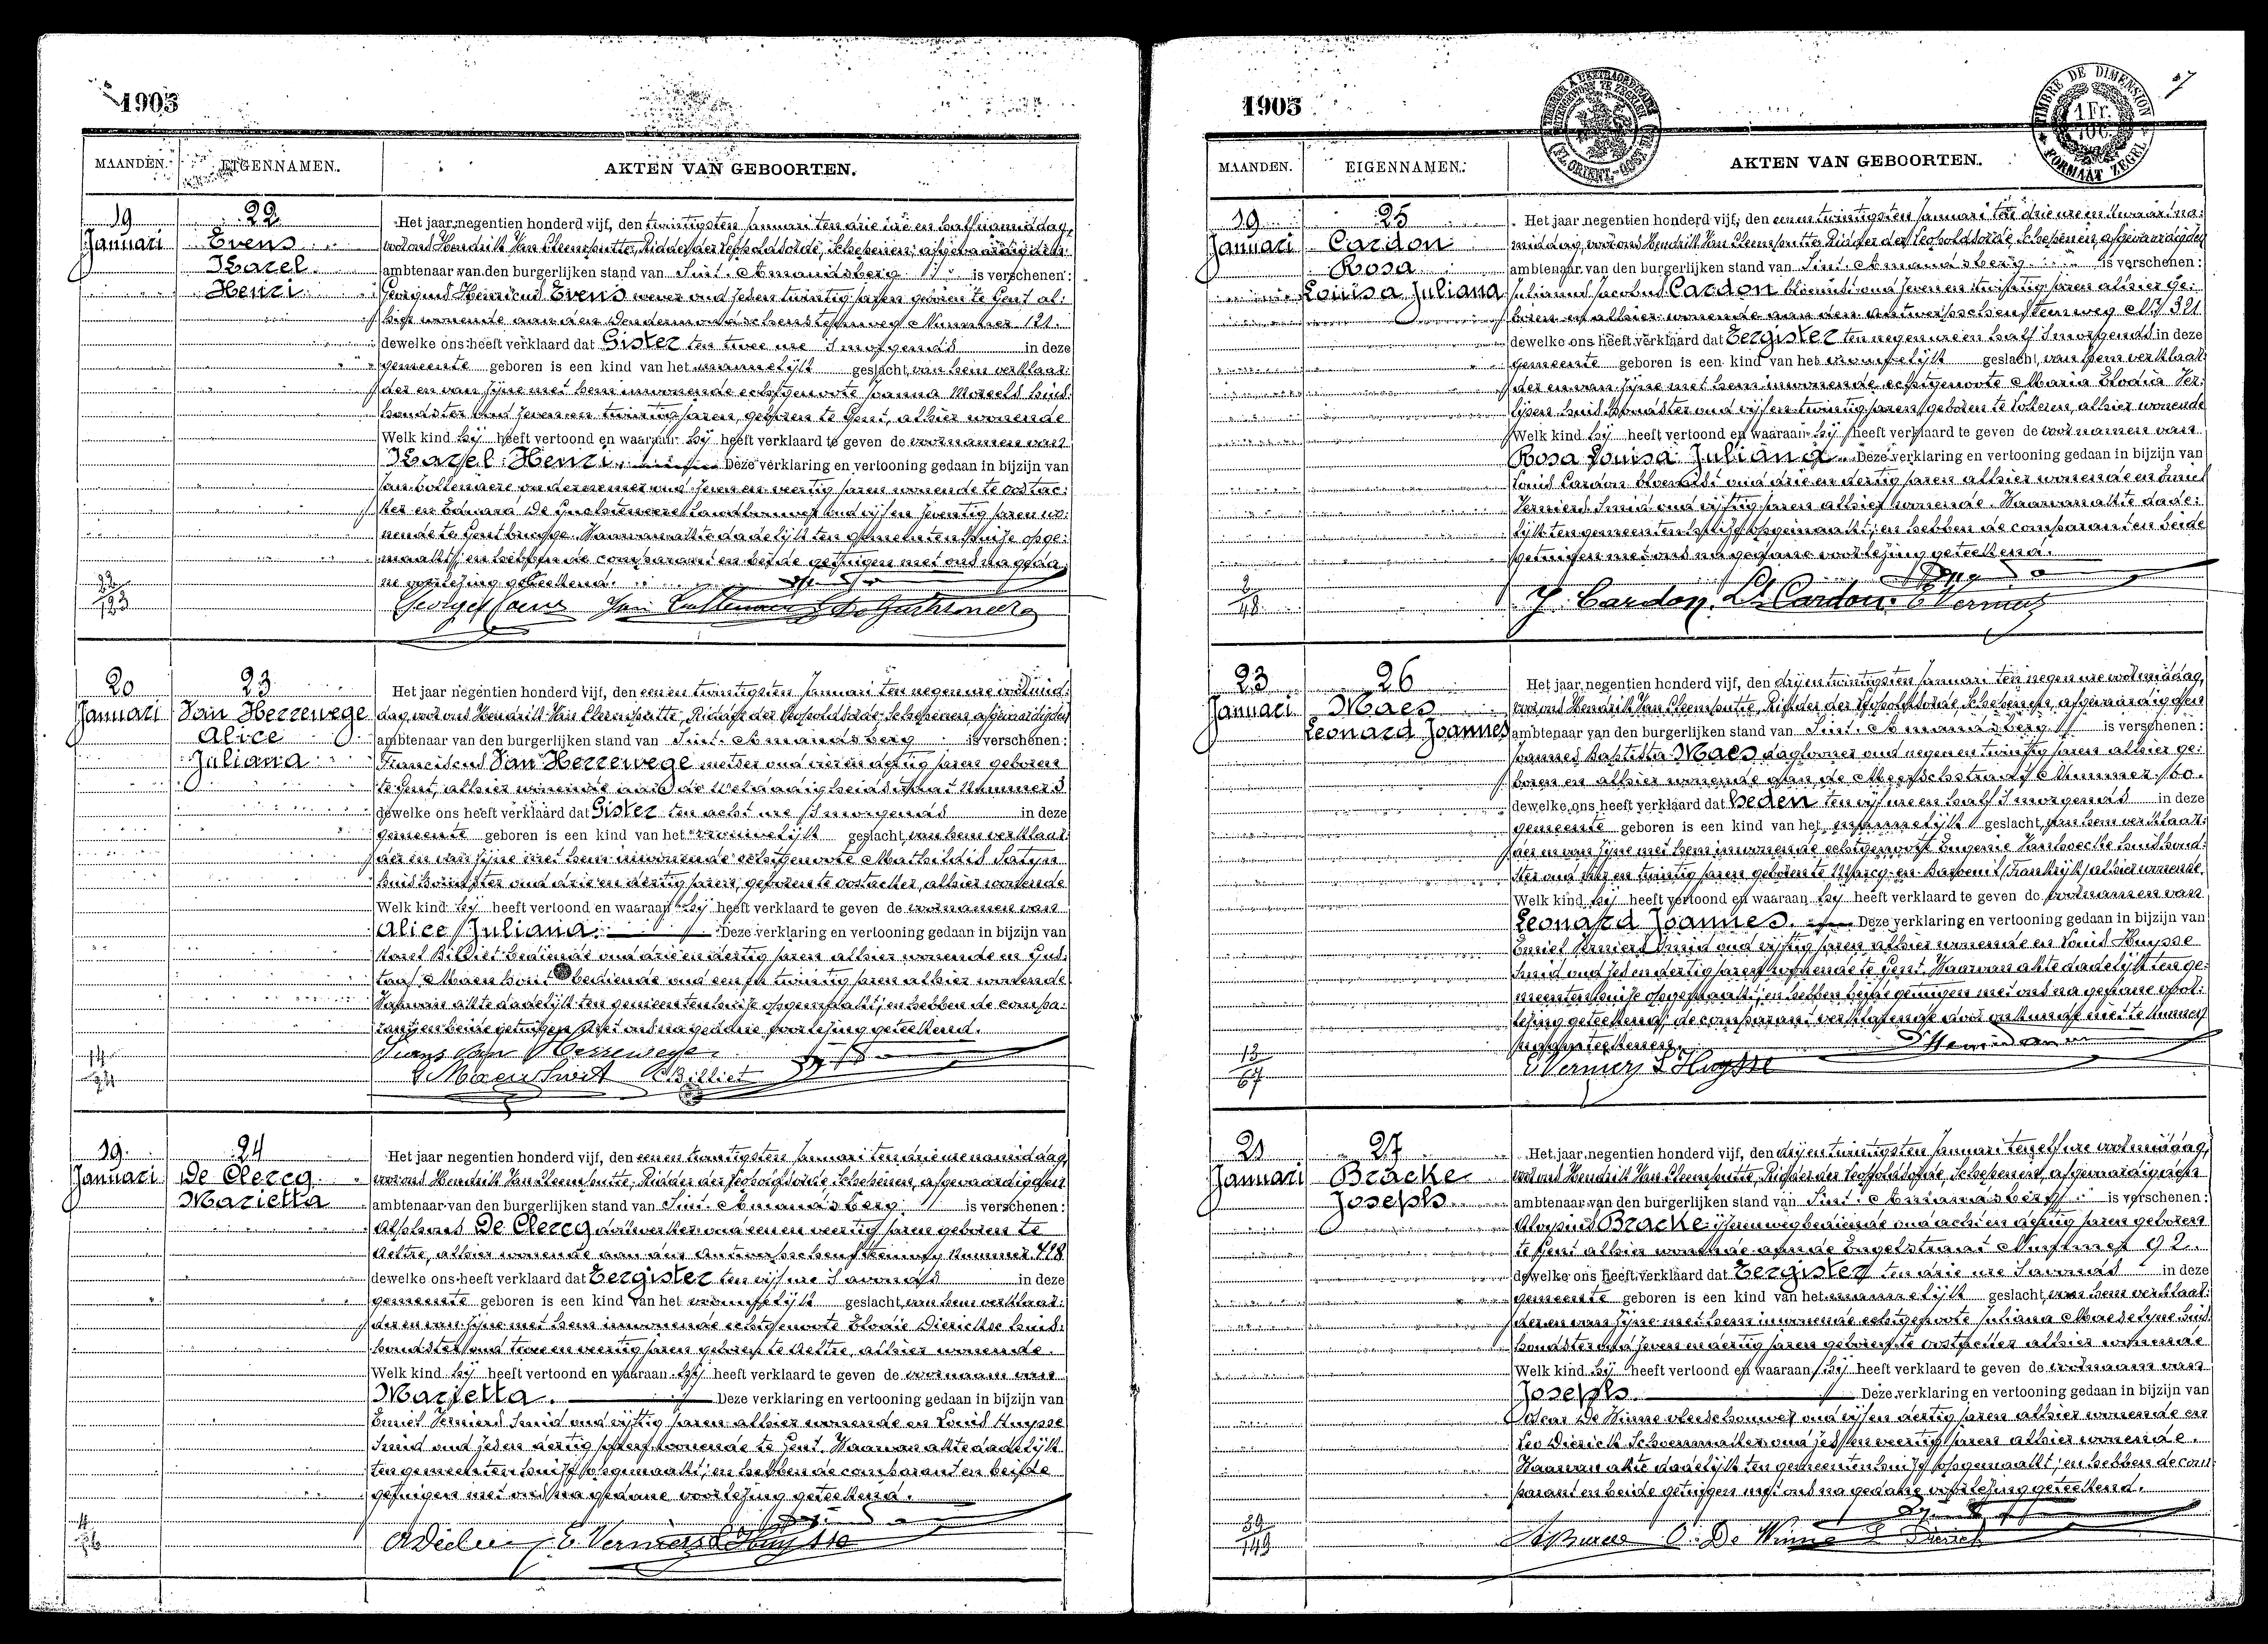 1905
MAANDEN. EIGENNAMEN. AKTEN VAN GEBOORTEN.
19 Januari
22
Evens
Karel
Henri
Het jaar negentien honderd vijf, den twintigsten Januari ten drie ure en half namiddag,
voor ons Hendrik Van Cleemputte, Ridder der Leopoldsorde, Schepenen, afgevaardigden
ambtenaar van den burgerlijken stand van Sint. Amandsberg is verschenen:
Georgius Henricus Evens wever oud zesen twintig jaren geboren te Gent al:
hier wonende aan den Dendermondschensteenweg Nummer 121.
dewelke ons heeft verklaard dat Gister ten twee ure 's morgends in deze
gemeente geboren is een kind van het mannelijk geslacht, van hem verklaar:
der en van zijne met hem inwonende echtgenoote Joanna Moreels huis:
houdster oud zeven en twintig jaren, geboren te Gent, alhier wonende
Welk kind hij heeft vertoond en waaraan hij heeft verklaard te geven de voornamen van
Karel Henri. Deze verklaring en vertooning gedaan in bijzijn van
Jan ondernemer oud zeven en veertig jaren wonende te Oostac:
ker en Eduard De landbouwer oud vijf en zeventig jaren wo:
nende te Gentbrugge. Waarvan akte dadelijk ten gemeentenhuize opge:
maakt; en hebben de comparant en beide getuigen met ons na gedaa:
ne voorlezing geteekend.
22/123
20 Januari
23
Van Herrewege
Alice
Juliana
Het jaar negentien honderd vijf, den eenen twintigsten Januari ten negen ure voormid:
dag, voor ons Hendrik Van Cleemputte, Ridder der Leopoldsorde, Schepenen, afgevaardigden
ambtenaar van den burgerlijken stand van Sint. Amandsberg is verschenen:
Franciscus Van Herrewege metser oud vier en dertig jaren geboren
te Gent, alhier wonende aan de Weldadigheidstraat Nummer 3
dewelke ons heeft verklaard dat Gister ten acht ure 's morgends in deze
gemeente geboren is een kind van het vrouwelijk geslacht, van hem verklaar:
der en van zijne met hem inwonende echtgenoote Mathildis Satyn
huishoudster oud drie en dertig jaren, geboren te Oostacker, alhier wonende
Welk kind hij heeft vertoond en waaraan hij heeft verklaard te geven de voornamen van
Alice Juliana. Deze verklaring en vertooning gedaan in bijzijn van
Karel Billiet bediende oud drie en dertig jaren alhier wonende en Gus:
taaf Maenhout bediende oud een en twintig jaren alhier wonende
Waarvan akte dadelijk ten gemeentenhuize opgemaakt; en hebben de compa:
rant en beide getuigen met ons na gedane voorlezing geteekend.
Frans Van Herrewege
G Maenhout C Billiet
19 Januari
24
De Clercq
Marietta
Het jaar negentien honderd vijf, den eenen twintigsten Januari ten drie ure namiddag,
voor ons Hendrik Van Cleemputte, Ridder der Leopoldsorde, Schepenen, afgevaardigden
ambtenaar van den burgerlijken stand van Sint. Amandsberg is verschenen:
Alphons De Clercq dakwerker oud een en veertig jaren geboren te
Aeltre, alhier wonende aan den Antwerpschensteenweg Nummer 418
dewelke ons heeft verklaard dat Eergister ten vijf ure 's avonds in deze
gemeente geboren is een kind van het vrouwelijk geslacht, van hem verklaar:
der en van zijne met hem inwonende echtgenoote Elodie Dierickse huis:
houdster oud twee en veertig jaren geboren te Aeltre, alhier wonende.
Welk kind hij heeft vertoond en waaraan hij heeft verklaard te geven de voornaam van
Marietta. Deze verklaring en vertooning gedaan in bijzijn van
Emiel Verniers smid oud vijftig jaren alhier wonende en Louis Huysse
smid oud zes en dertig jaren wonende te Gent. Waarvan akte dadelijk
ten gemeentenhuize opgemaakt; en hebben de comparant en beide
getuigen met ons na gedane voorlezing geteekend.
E Verniers L Huysse
1905
TIMBRE DE DIMENSION
1 Fr.
FORMAAT ZEGEL
MAANDEN. EIGENNAMEN. AKTEN VAN GEBOORTEN.
19 Januari
25
Cardon
Rosa
Louisa Juliana
Het jaar negentien honderd vijf, den eenen twintigsten Januari ten drie ure en kwaart na:
middag, voor ons Hendrik Van Cleemputte, Ridder der Leopoldsorde, Schepenen, afgevaardigden
ambtenaar van den burgerlijken stand van Sint. Amandsberg is verschenen:
Julianus Jacobus Cardon bloemist oud zeven en twintig jaren alhier ge:
boren en alhier wonende aan den Antwerpschensteenweg Nr 321
dewelke ons heeft verklaard dat Eergister ten negen ure en half 's morgends in deze
gemeente geboren is een kind van het vrouwelijk geslacht, van hem verklaar:
der en van zijne met hem inwonende echtgenoote Maria Elodia Ver:
lysen huishoudster oud vijf en twintig jaren geboren te Lotteren, alhier wonende
Welk kind hij heeft vertoond en waaraan hij heeft verklaard te geven de voornamen van
Rosa Louisa Juliana. Deze verklaring en vertooning gedaan in bijzijn van
Louis Cardon bloemist oud drie en dertig jaren alhier wonende en Emiel
Verniers smid oud vijftig jaren alhier wonende. Waarvan akte dade:
lijk ten gemeentenhuize opgemaakt; en hebben de comparant en beide
getuigen met ons na gedane voorlezing geteekend.
2/48
J. Cardon. Ls Cardon. E Verniers
23 Januari
26
Maes
Leonard Joannes
Het jaar negentien honderd vijf, den drij en twintigsten Januari ten negen ure voormiddag,
voor ons Hendrik Van Cleemputte, Ridder der Leopoldsorde, Schepenen, afgevaardigden
ambtenaar van den burgerlijken stand van Sint. Amandsberg is verschenen:
Joannes Baptista Maes daglooner oud negen en twintig jaren alhier ge:
boren en alhier wonende aan de Meerschstraat Nummer 60.
dewelke ons heeft verklaard dat heden ten vijf ure en half 's morgends in deze
gemeente geboren is een kind van het mannelijk geslacht, van hem verklaar:
der en van zijne met hem inwonende echtgenoote Eugenie Vanhoecke huishoud:
ster oud vier en twintig jaren geboren te Marcq-en-Baroeul (Frankrijk) alhier wonende.
Welk kind hij heeft vertoond en waaraan hij heeft verklaard te geven de voornamen van
Leonard Joannes. Deze verklaring en vertooning gedaan in bijzijn van
Emiel Verniers smid oud vijftig jaren alhier wonende en Louis Huysse
smid oud zes en dertig jaren wonende te Gent. Waarvan akte dadelijk ten ge:
meentenhuize opgemaakt; en hebben beide getuigen met ons na gedane voor:
lezing geteekend; de comparant verklarende door onkunde niet te kunnen
13/67
E Verniers L Huysse
21 Januari
27
Bracke
Joseph
Het jaar negentien honderd vijf, den drij en twintigsten Januari ten elf ure voormiddag,
voor ons Hendrik Van Cleemputte, Ridder der Leopoldsorde, Schepenen, afgevaardigden
ambtenaar van den burgerlijken stand van Sint. Amandsberg is verschenen:
Aloysius Bracke ijzerenwegbediende oud acht en dertig jaren geboren
te Gent alhier wonende aan de Engelstraat Nummer 92.
dewelke ons heeft verklaard dat Eergister ten drie ure 's avonds in deze
gemeente geboren is een kind van het mannelijk geslacht, van hem verklaar:
der en van zijne met hem inwonende echtgenoote Juliana Maeselyne huis:
houdster oud zeven en dertig jaren geboren te Oostacker alhier wonende
Welk kind hij heeft vertoond en waaraan hij heeft verklaard te geven de voornaam van
Joseph. Deze verklaring en vertooning gedaan in bijzijn van
Oscar De Winne vleeschouwer oud vijf en dertig jaren alhier wonende en
Leo Dierick schoenmaker oud zes en veertig jaren alhier wonende.
Waarvan akte dadelijk ten gemeentenhuize opgemaakt; en hebben de com:
parant en beide getuigen met ons na gedane voorlezing geteekend.
39/149
O. De Winne L Dierick